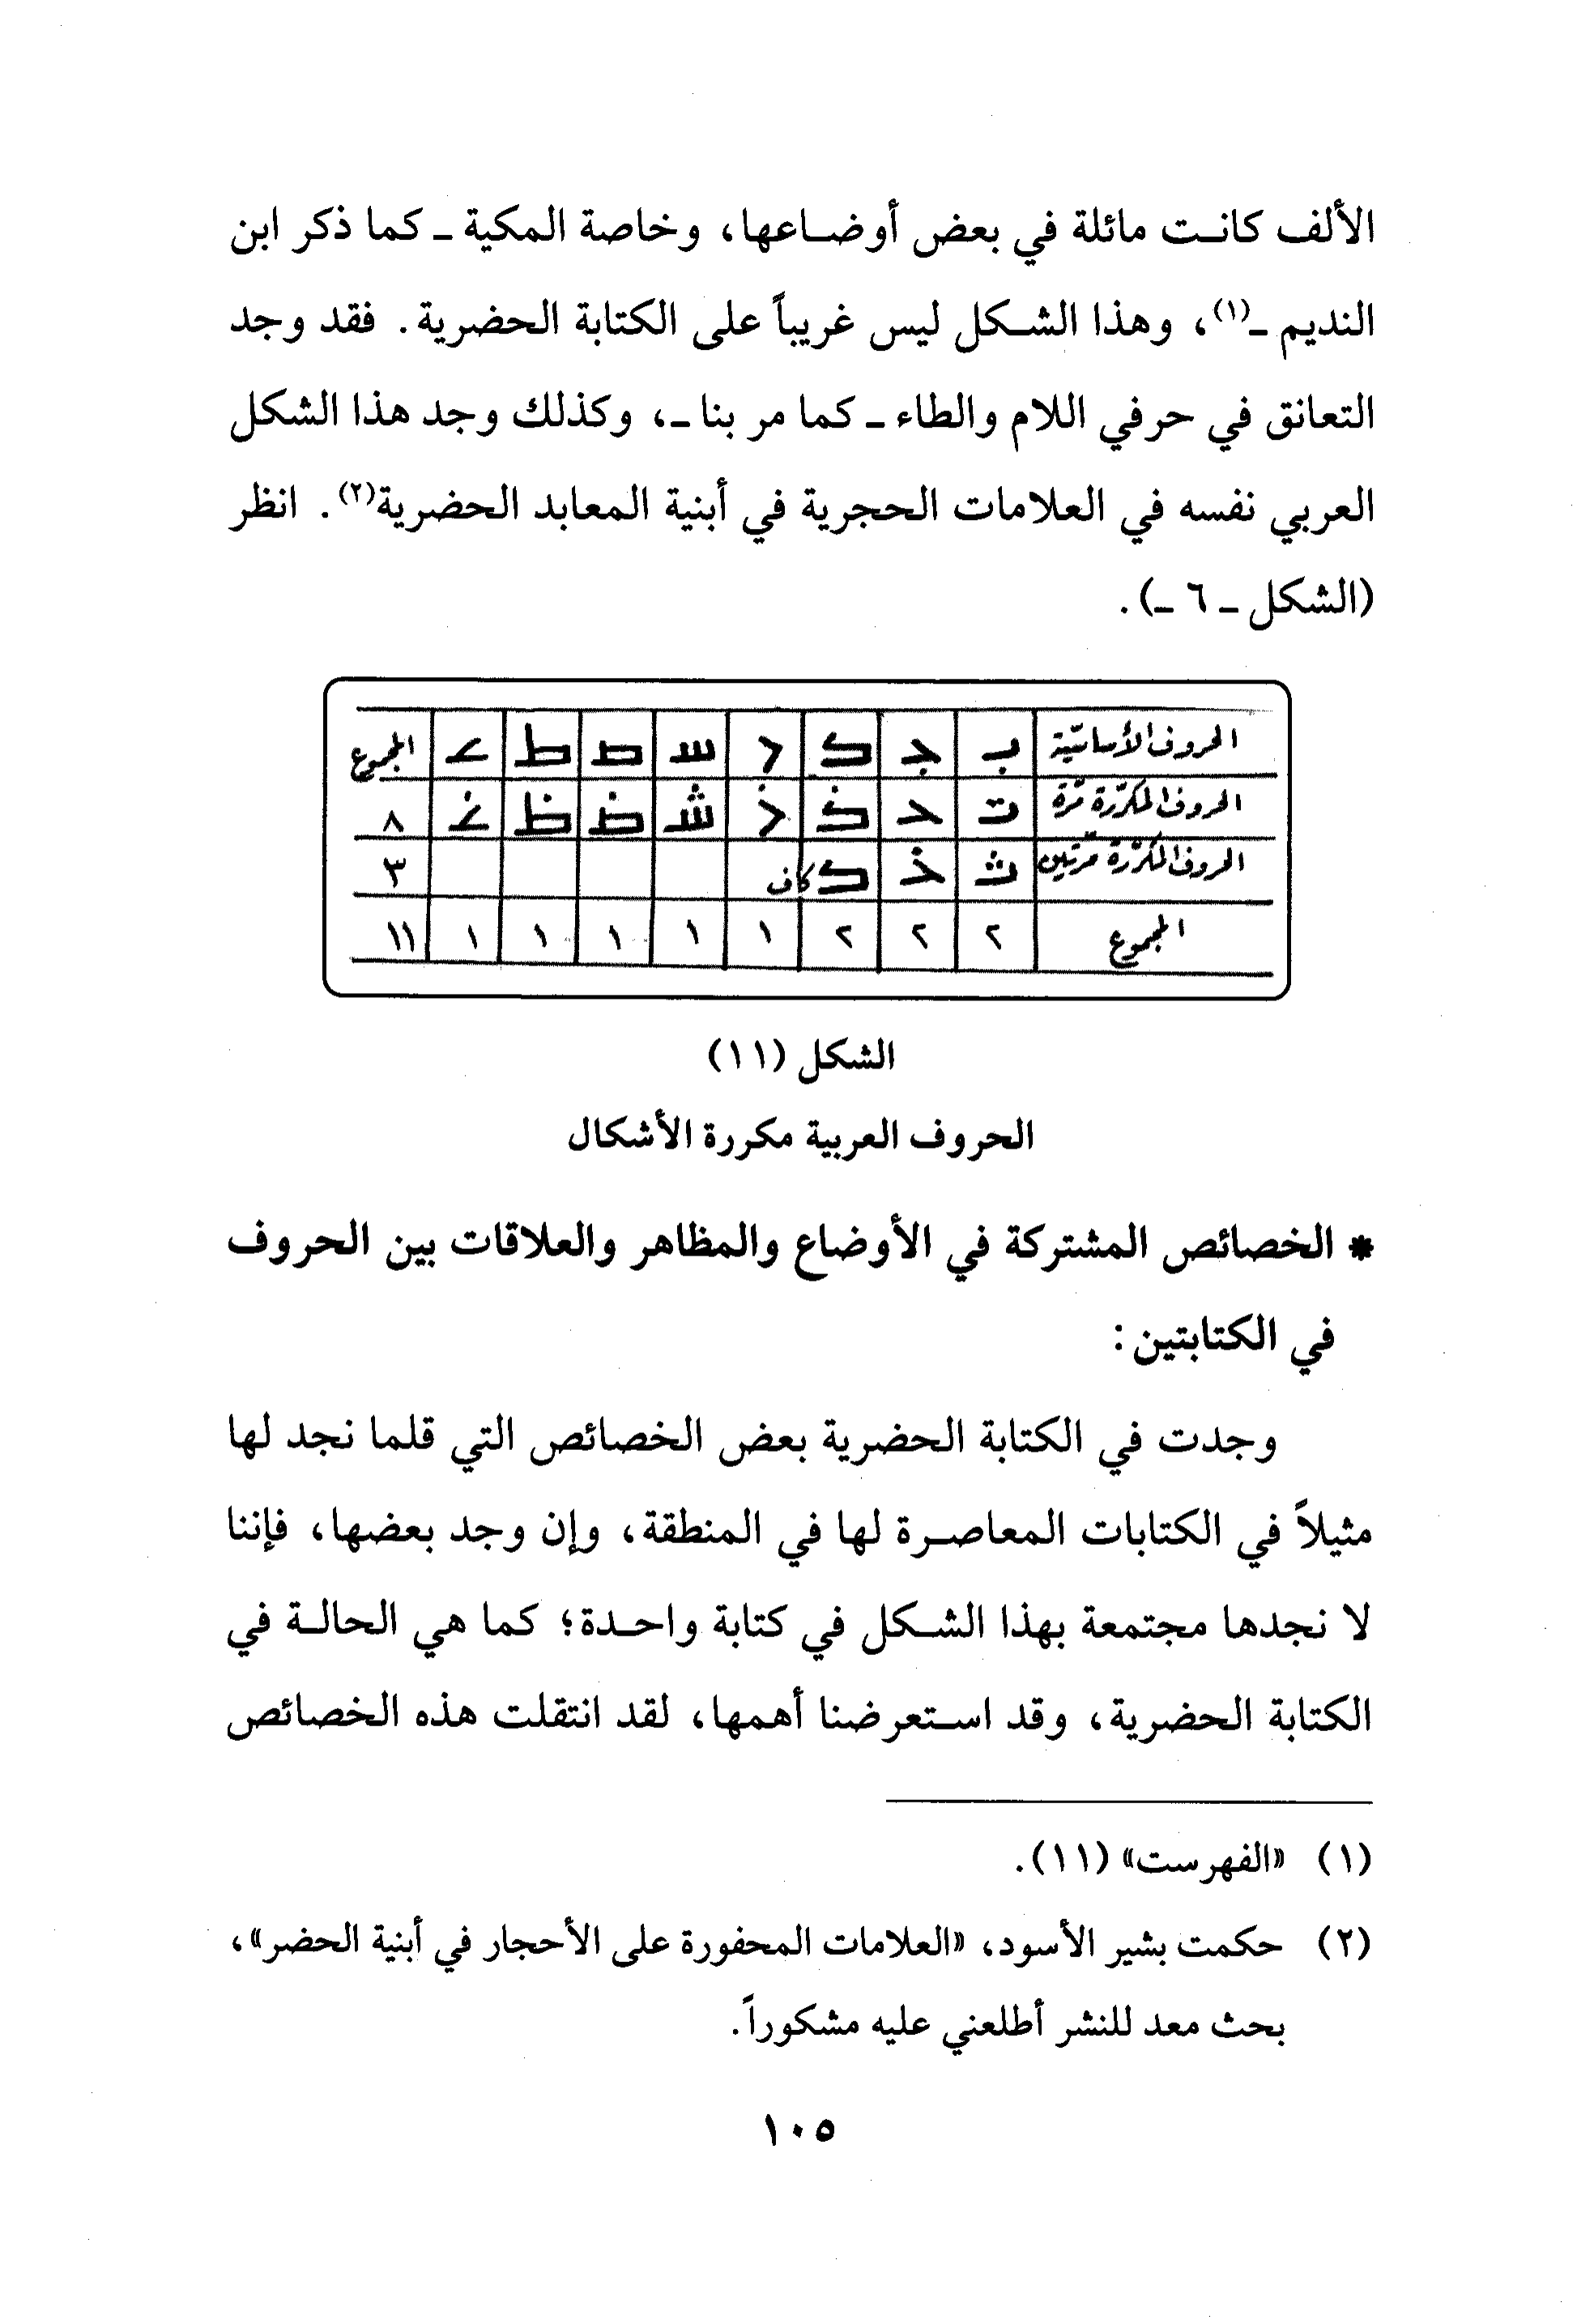 الألف كانت مائلة في بعض أوضاعها، وخاصة المكية ـ كما ذكر ابن
النديم ـ(١)، وهذا الشكل ليس غريباً على الكتابة الحضرية. فقد وجد
التعانق في حرفي اللام والطاء ـ كما مر بنا ـ، وكذلك وجد هذا الشكل
العربي نفسه في العلامات الحجرية في أبنية المعابد الحضرية(٢). انظر
(الشكل ـ ٦ ـ).
الحروف الأساسيّة ب ج د ر س ص ط ع المجموع
الحروف المكرّرة مرّة ت ح ذ ز ش ض ظ غ ٨
الحروف المكرّرة مرّتين ث خ ك كاف ٣
المجموع ٢ ٢ ٢ ١ ١ ١ ١ ١ ١١
الشكل (١١)
الحروف العربية مكررة الأشكال
* الخصائص المشتركة في الأوضاع والمظاهر والعلاقات بين الحروف
في الكتابتين:
وجدت في الكتابة الحضرية بعض الخصائص التي قلما نجد لها
مثيلاً في الكتابات المعاصرة لها في المنطقة، وإن وجد بعضها، فإننا
لا نجدها مجتمعة بهذا الشكل في كتابة واحدة؛ كما هي الحالة في
الكتابة الحضرية، وقد استعرضنا أهمها، لقد انتقلت هذه الخصائص
(١) «الفهرست» (١١).
(٢) حكمت بشير الأسود، «العلامات المحفورة على الأحجار في أبنية الحضر»،
بحث معد للنشر أطلعني عليه مشكوراً.
١٠٥